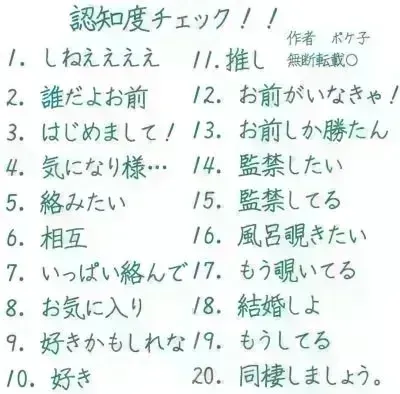 認知度チェック！！
作者 ポケ子
無断転載〇
1. しねえええええ
2. 誰だよお前
3. はじめまして！
4. 気になり様…
5. 絡みたい
6. 相互
7. いっぱい絡んで
8. お気に入り
9. 好きかもしれな
10. 好き
11. 推し
12. お前がいなきゃ！
13. お前しか勝たん
14. 監禁したい
15. 監禁してる
16. 風呂覗きたい
17. もう覗いてる
18. 結婚しよ
19. もうしてる
20. 同棲しましょう。